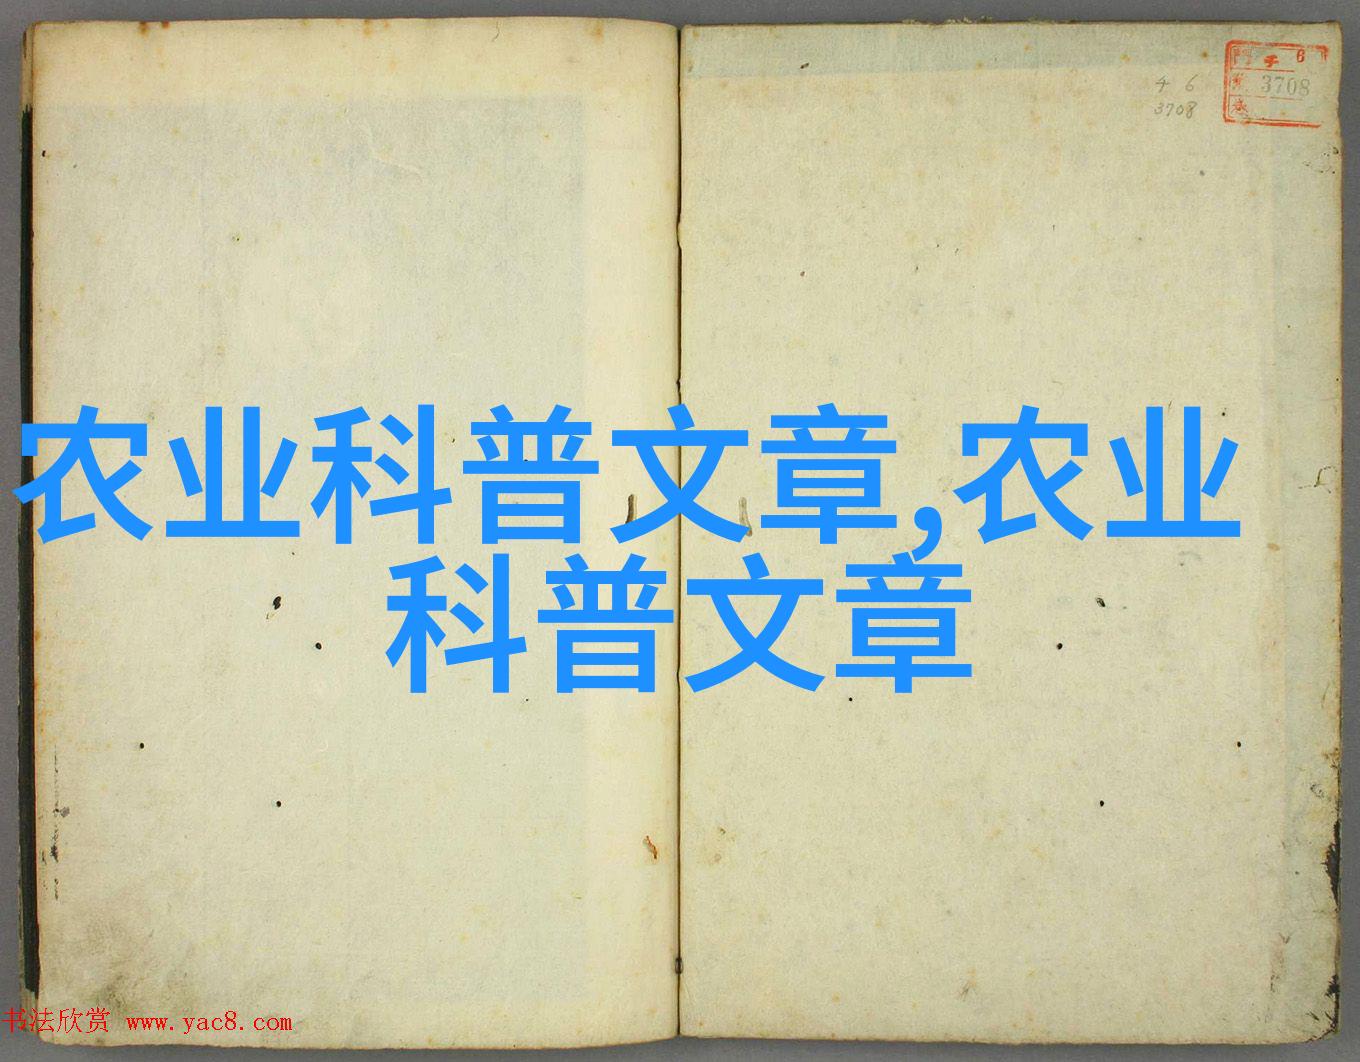 チ 6
3708
門 チ 6
3708
農业科普文章,农业
科普文章
书法欣赏 www.yac8.com